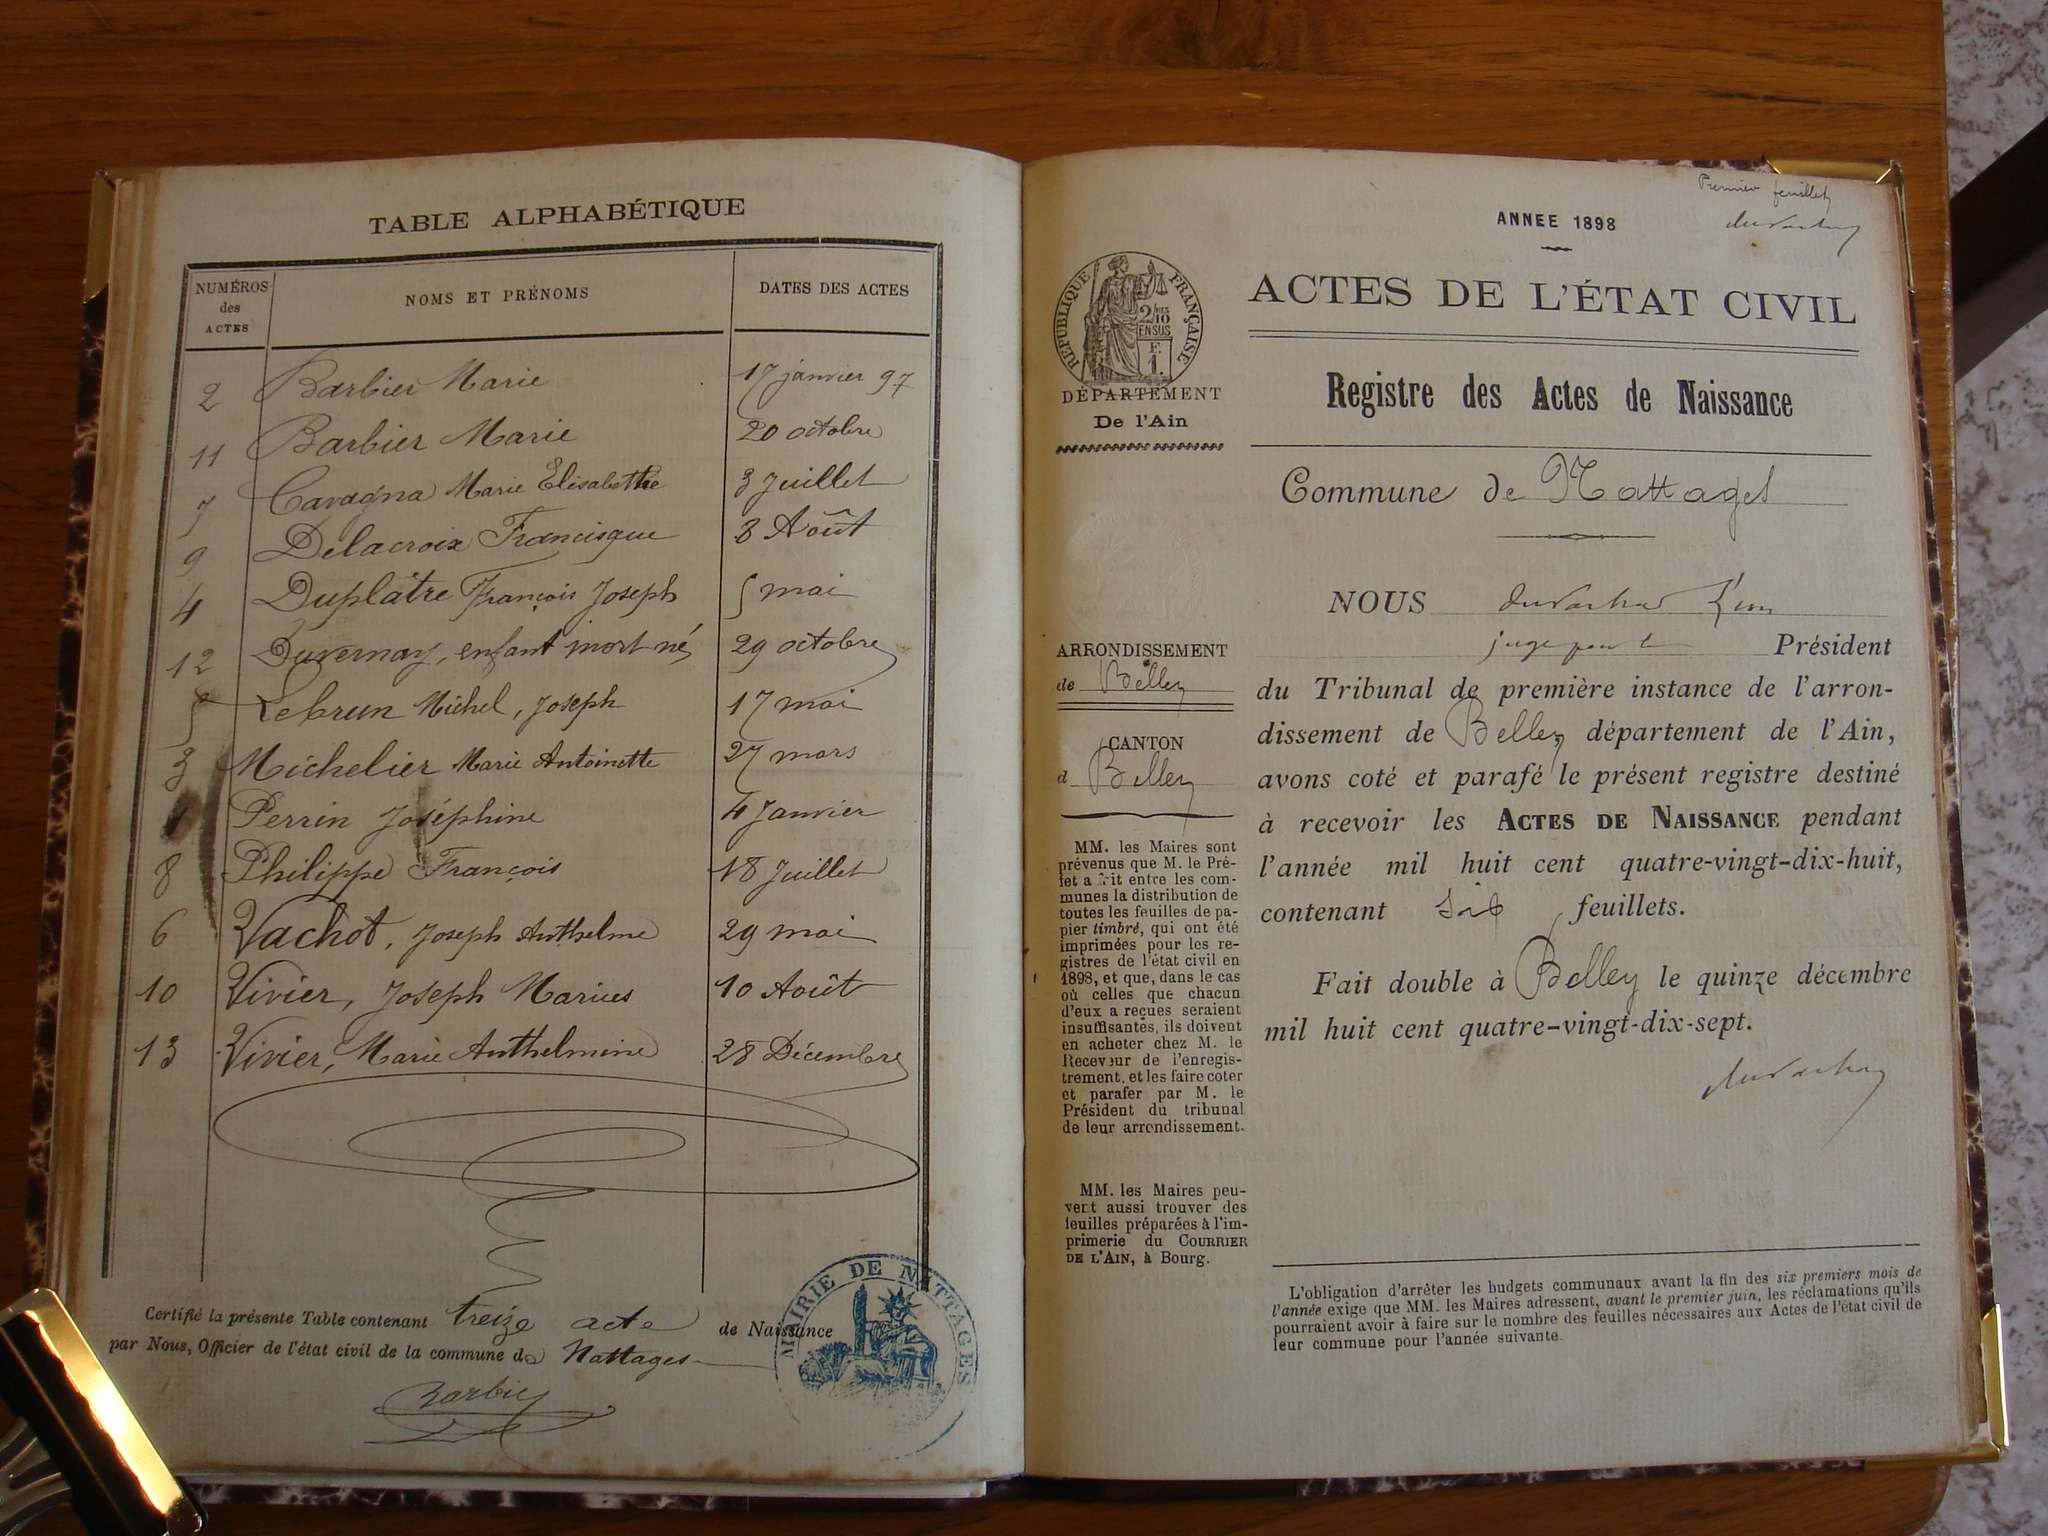 TABLE ALPHABÉTIQUE
NUMÉROS des ACTES NOMS ET PRÉNOMS DATES DES ACTES
2 Barbier Marie 17 janvier 97
11 Barbier Marie 20 octobre
7 Cavagna Marie Elisabethe 3 Juillet
9 Delacroix Francisque 8 Août
4 Duplâtre François Joseph 5 mai
12 Duvernay, enfant mort né 29 octobre
5 Lebrun Michel, Joseph 17 mai
3 Michelier Marie Antoinette 27 mars
1 Perrin Joséphine 4 Janvier
8 Philippe François 18 Juillet
6 Vachot, Joseph Anthelme 29 mai
10 Vivier, Joseph Marius 10 Août
13 Vivier, Marie Anthelmine 28 Décembre
Certifié la présente Table contenant treize acte de Naissance
par Nous, Officier de l'état civil de la commune de Nattages
Barbier
MAIRIE DE NATTAGES
Premier feuillet
ANNEE 1898
RÉPUBLIQUE FRANÇAISE
2/10 EN SUS
F. 1.
DÉPARTEMENT
De l'Ain
ACTES DE L'ÉTAT CIVIL
Registre des Actes de Naissance
Commune de Nattages
ARRONDISSEMENT
de Belley
CANTON
d Belley
MM. les Maires sont
prévenus que M. le Pré-
fet a fait entre les com-
munes la distribution de
toutes les feuilles de pa-
pier timbré, qui ont été
imprimées pour les re-
gistres de l'état civil en
1898, et que, dans le cas
où celles que chacun
d'eux a reçues seraient
insuffisantes, ils doivent
en acheter chez M. le
Receveur de l'enregis-
trement, et les faire coter
et parafer par M. le
Président du tribunal
de leur arrondissement.
MM. les Maires peu-
vent aussi trouver des
feuilles préparées à l'im-
primerie du COURRIER
DE L'AIN, à Bourg.
NOUS
juge pour le Président
du Tribunal de première instance de l'arron-
dissement de Belley département de l'Ain,
avons coté et parafé le présent registre destiné
à recevoir les ACTES DE NAISSANCE pendant
l'année mil huit cent quatre-vingt-dix-huit,
contenant six feuillets.
Fait double à Belley le quinze décembre
mil huit cent quatre-vingt-dix-sept.
L'obligation d'arrêter les budgets communaux avant la fin des six premiers mois de
l'année exige que MM. les Maires adressent, avant le premier juin, les réclamations qu'ils
pourraient avoir à faire sur le nombre des feuilles nécessaires aux Actes de l'état civil de
leur commune pour l'année suivante.